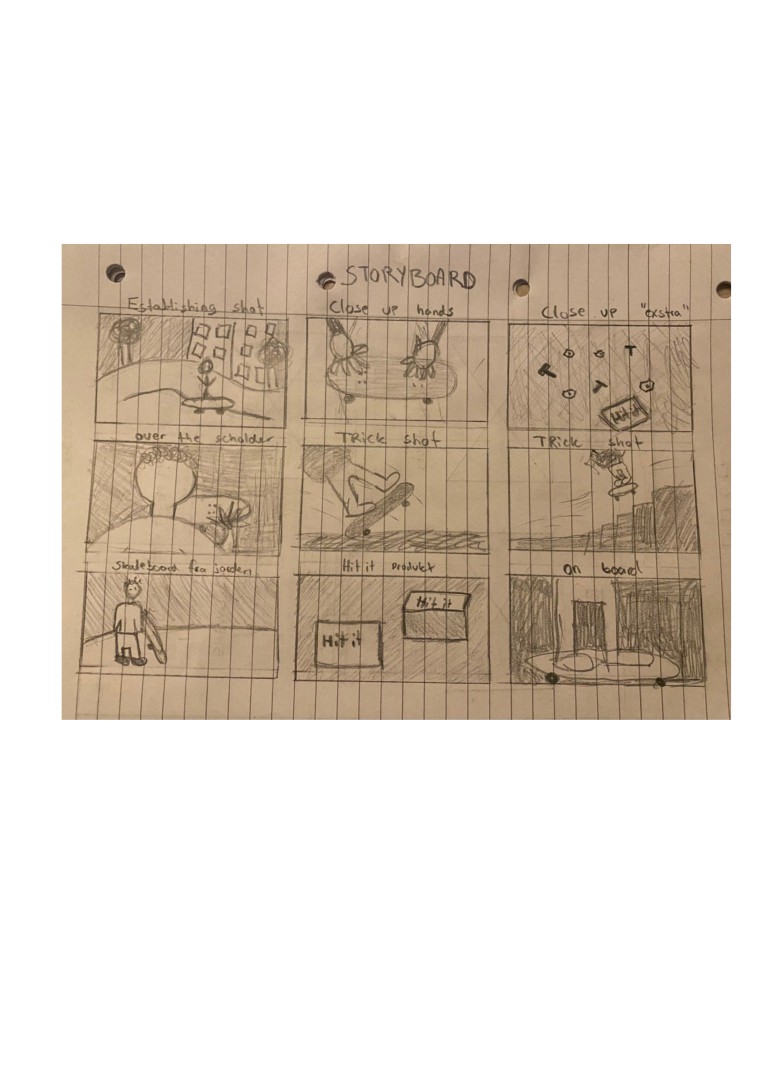 STORYBOARD
Establishing shot
Close up hands
Close up "exstra"
Hit it
over the scholder
TRick shot
TRick shot
skateboard fra jorden
Hit it produkt
on board
Hit it
Hit it